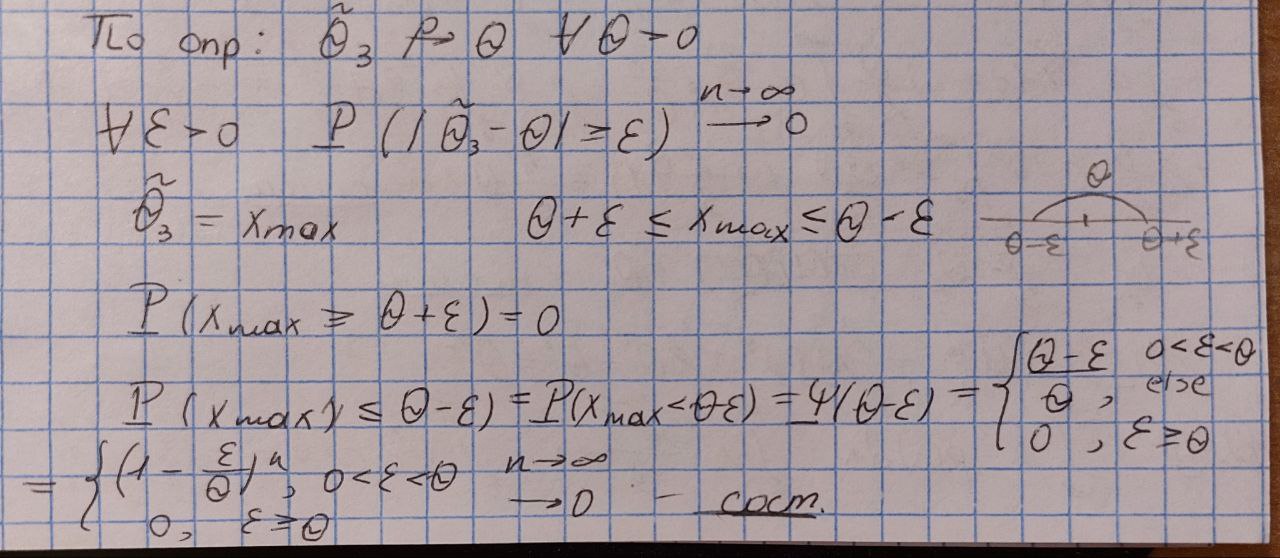 По опр: θ̃₃ p→ θ ∀ θ > 0
∀ ε > 0 P (|θ̃₃ - θ| ≥ ε) n→∞ → 0
θ̃₃ = x max θ + ε ≤ x max ≤ θ - ε θ θ-ε θ+ε
P (x max ≥ θ + ε) = 0
P (x max ≤ θ-ε) = P(x max < θ-ε) = Ψ(θ-ε) = { θ-ε / θ , 0<ε<θ else 0 , ε ≥ θ
= { (1 - ε/θ)ⁿ, 0<ε<θ 0, ε ≥ θ n→∞ → 0 - сост.